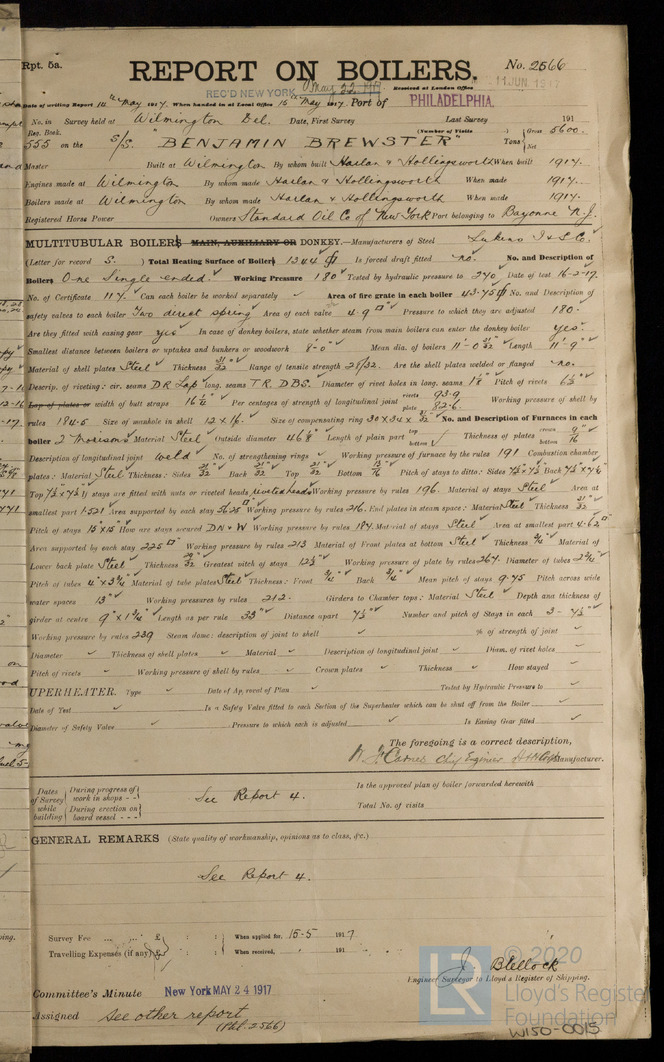 Rpt. 5a.
REPORT ON BOILERS.
No. 2566
REC'D NEW YORK May 22 1917
Received at London Office 11 JUN. 1917
Date of writing Report 14th May 1917. When handed in at Local Office 15th May 1917. Port of PHILADELPHIA.
No. in Survey held at Wilmington Del. Date, First Survey Last Survey 191
Reg. Book. (Number of Visits ) Gross 5600.
555 on the S/S. "BENJAMIN BREWSTER" Tons Net
Master Built at Wilmington By whom built Harlan & Hollingsworth When built 1917.
Engines made at Wilmington By whom made Harlan & Hollingsworth When made 1917.
Boilers made at Wilmington By whom made Harlan & Hollingsworth When made 1917.
Registered Horse Power Owners Standard Oil Co of New York Port belonging to Bayonne N.J.
MULTITUBULAR BOILERS MAIN, AUXILIARY OR DONKEY.—Manufacturers of Steel Lukens I & S. Co.
(Letter for record S.) Total Heating Surface of Boilers 1344 Is forced draft fitted no. No. and Description of
Boilers One Single ended. Working Pressure 180 Tested by hydraulic pressure to 270 Date of test 16-2-17.
No. of Certificate 117. Can each boiler be worked separately Area of fire grate in each boiler 43.75 No. and Description of
safety valves to each boiler Two direct spring Area of each valve 4.9 Pressure to which they are adjusted 180.
Are they fitted with easing gear yes In case of donkey boilers, state whether steam from main boilers can enter the donkey boiler yes.
Smallest distance between boilers or uptakes and bunkers or woodwork 8'-0" Mean dia. of boilers 11'-0 21/32" Length 11'-9"
Material of shell plates Steel Thickness 31/32 Range of tensile strength 28/32. Are the shell plates welded or flanged no.
Descrip. of riveting: cir. seams D R Lap long. seams T.R. D.B.S. Diameter of rivet holes in long. seams 1" Pitch of rivets 6 1/2"
Lap of plates or width of butt straps 16 1/4" Per centages of strength of longitudinal joint rivets 93.9 plate 82.6 Working pressure of shell by
rules 184.5 Size of manhole in shell 12 x 16. Size of compensating ring 30 x 34 x 31/32 No. and Description of Furnaces in each
boiler 2 Morisons Material Steel Outside diameter 46 5/8" Length of plain part top bottom Thickness of plates crown bottom 9/16"
Description of longitudinal joint weld No. of strengthening rings Working pressure of furnace by the rules 191 Combustion chamber
plates: Material Steel Thickness: Sides 21/32 Back 21/32 Top 21/32 Bottom 13/16 Pitch of stays to ditto: Sides 7 1/2 x 7 1/2 Back 7 1/2 x 7 1/2"
Top 7 1/2 x 7 1/2 If stays are fitted with nuts or riveted heads riveted heads Working pressure by rules 196. Material of stays Steel Area at
smallest part 1.521 Area supported by each stay 56.25 Working pressure by rules 216. End plates in steam space: Material Steel Thickness 31/32
Pitch of stays 15" x 15" How are stays secured D N & W Working pressure by rules 184 Material of stays Steel Area at smallest part 4.62
Area supported by each stay 225 Working pressure by rules 213 Material of Front plates at bottom Steel Thickness 3/4" Material of
Lower back plate Steel Thickness 29/32 Greatest pitch of stays 12 1/2" Working pressure of plate by rules 264. Diameter of tubes 2 3/4"
Pitch of tubes 4" x 3 3/4" Material of tube plates Steel Thickness: Front 3/4" Back 3/4" Mean pitch of stays 9.75 Pitch across wide
water spaces 13" Working pressures by rules 212. Girders to Chamber tops: Material Steel Depth and thickness of
girder at centre 9" x 1 3/4" Length as per rule 33" Distance apart 7 1/2" Number and pitch of Stays in each 3 - 7 1/2"
Working pressure by rules 239 Steam dome: description of joint to shell % of strength of joint
Diameter Thickness of shell plates Material Description of longitudinal joint Diam. of rivet holes
Pitch of rivets Working pressure of shell by rules Crown plates Thickness How stayed
UPERHEATER. Type Date of Approval of Plan Tested by Hydraulic Pressure to
Date of Test Is a Safety Valve fitted to each Section of the Superheater which can be shut off from the Boiler
Diameter of Safety Valve Pressure to which each is adjusted Is Easing Gear fitted
The foregoing is a correct description,
Chf Engineer Manufacturer.
Dates of Survey while building
During progress of work in shops - -
During erection on board vessel - - -
See Report 4.
Is the approved plan of boiler forwarded herewith
Total No. of visits
GENERAL REMARKS (State quality of workmanship, opinions as to class, &c.)
See Report 4.
Survey Fee ... ... £ : : When applied for, 15-5 1917
Travelling Expenses (if any) £ : : When received, 191
J. Blellock
Engineer Surveyor to Lloyd's Register of Shipping.
Committee's Minute New York MAY 24 1917
Assigned See other report
(Phl. 2566)
© 2020
Lloyd's Register
Foundation
W150-0015